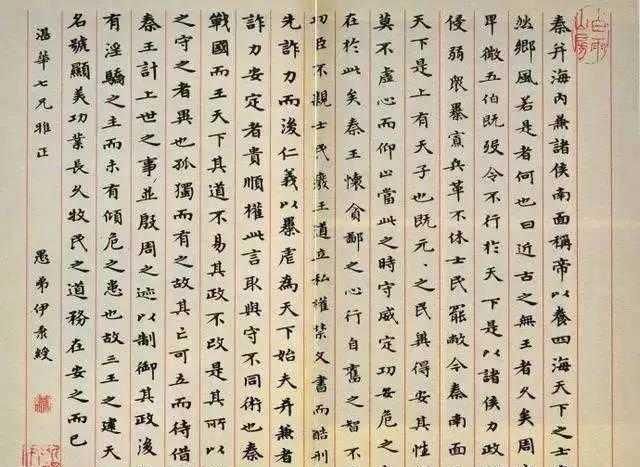 秦并海內兼諸侯南面稱帝以養四海天下之士
然鄉風若是者何也曰近古之無王者久矣周
卑微五伯既歿令不行於天下是以諸侯力政
侵弱眾暴寡兵革不休士民罷敝今秦南面
天下是上有天子也既元、之民冀得安其性
莫不虛心而仰上當此之時守威定功安危之
在於此矣秦王懷貪鄙之心行自奮之智不
功臣不親士民廢王道立私權禁文書而酷刑
先詐力而後仁義以暴虐為天下始夫并兼者
詐力安定者貴順權此言取與守不同術也秦
戰國而王天下其道不易其政不改是其所以
之守之者異也孤獨而有之故其亡可立而待借
秦王計上世之事並殷周之迹以制御其政後
有淫驕之主而未有傾危之患也故三王之建天
名號顯美功業長久牧民之道務在安之而已
華七兄雅正
愚弟伊秉綬